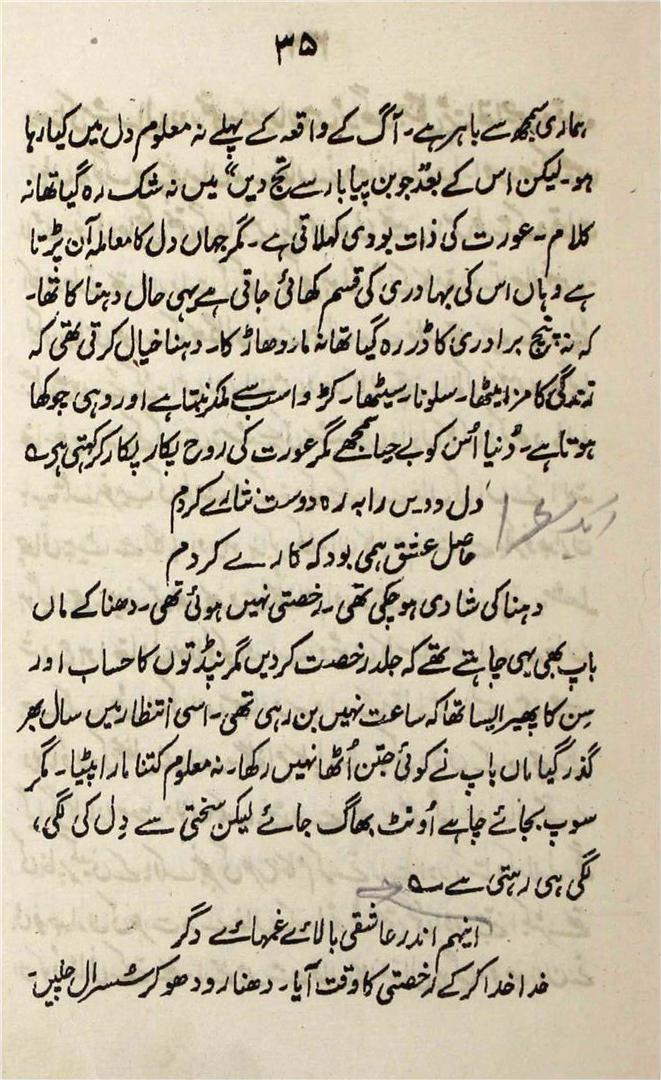 ۳۵
ہماری سمجھ سے باہر ہے۔ آگ کے واقعہ کے پہلے نہ معلوم دل میں کیا رہا
ہو۔ لیکن اس کے بعد جوبن پیا بار سے تج دیں“ میں نہ شک رہ گیا تھا نہ
کلام۔ عورت کی ذات بودی کہلاتی ہے۔ مگر جہاں دل کا معاملہ آن پڑتا
ہے وہاں اس کی بہادری کی قسم کھائی جاتی ہے یہی حال دہنا کا تھا۔
کہ نہ پنچ برادری کا ڈر رہ گیا تھا نہ مار دھاڑ کا۔ دہنا خیال کرتی تھی کہ
زندگی کا مزا میٹھا۔ سلونا۔ سیٹھا۔ کڑوا سب سے ملکر بنتا ہے اور وہی چوکھا
ہوتا ہے۔ دُنیا اُسن کو بے حیا سمجھے مگر عورت کی روح پکار پکار کر کہتی ہی ؎
دل و دیں را بہ رہ دوست نثارے کردم
حاصل عشق ہمی بود کہ کارے کردم
دہنا کی شادی ہو چکی تھی۔ رخصتی نہیں ہوئی تھی۔ دھنا کے ماں
باپ بھی یہی چاہتے تھے کہ جلد رخصت کردیں مگر پنڈتوں کا حساب اور
سِن کا پھیر ایسا تھا کہ ساعت نہیں بن رہی تھی۔ اسی انتظار میں سال بھر
گذر گیا ماں باپ نے کوئی جتن اُٹھا نہیں رکھا۔ نہ معلوم کتنا مارا پیٹا۔ مگر
سوپ بجائے چاہے اُونٹ بھاگ جائے لیکن سختی سے دِل کی لگی،
لگی ہی رہتی سے ؎
اینہم اندر عاشقی بالائے غمہائے دگر
خدا خدا کر کے رخصتی کا وقت آیا۔ دھنا رو دھو کر سُسرال چلیں۔